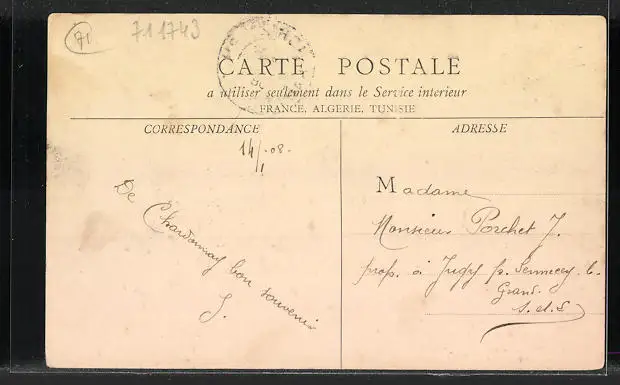 71
711743
CARTE POSTALE
a utiliser seulement dans le Service interieur
FRANCE, ALGERIE, TUNISIE
CORRESPONDANCE
ADRESSE
14/1-08-
De Chardonnay bon souvenir
J.
Madame
Monsieur Porchet J.
prop. à Jugy p. Sennecey-l-
Grand.
S.-et-L